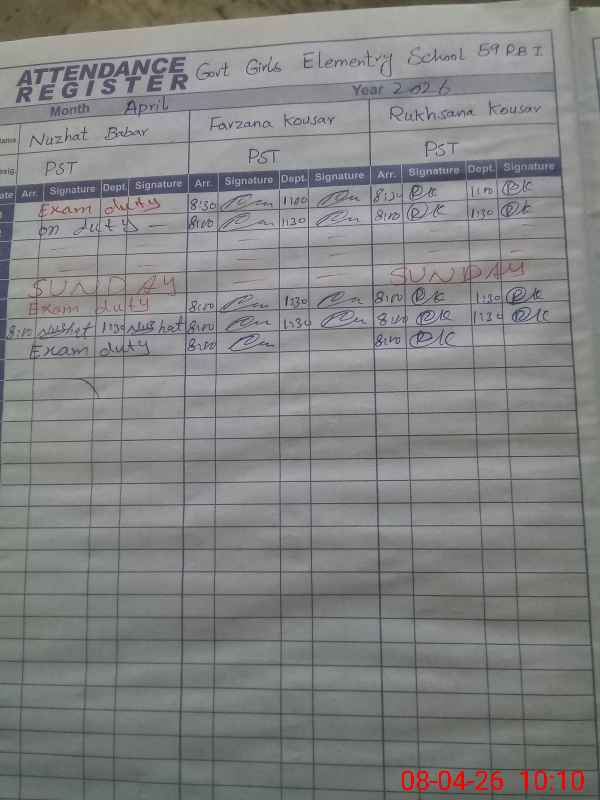 ATTENDANCE REGISTER Govt Girls Elementry School 59 D.B I
Month April Year 2026
Name Nuzhat Babar Farzana Kousar Rukhsana Kousar
esig. PST PST PST
ate Arr. Signature Dept. Signature Arr. Signature Dept. Signature Arr. Signature Dept. Signature
Exam duty 8:30 1:00 8:30 RK 1:00 RK
on duty — 8:00 1:30 8:00 RK 1:30 RK
SUNDAY SUNDAY
Exam duty 8:00 1:30 8:00 RK 1:30 RK
8:00 Nuzhat 1:30 Nuzhat 8:00 1:30 8:00 RK 1:30 RK
Exam duty 8:00 8:00 RK
08-04-26 10:10